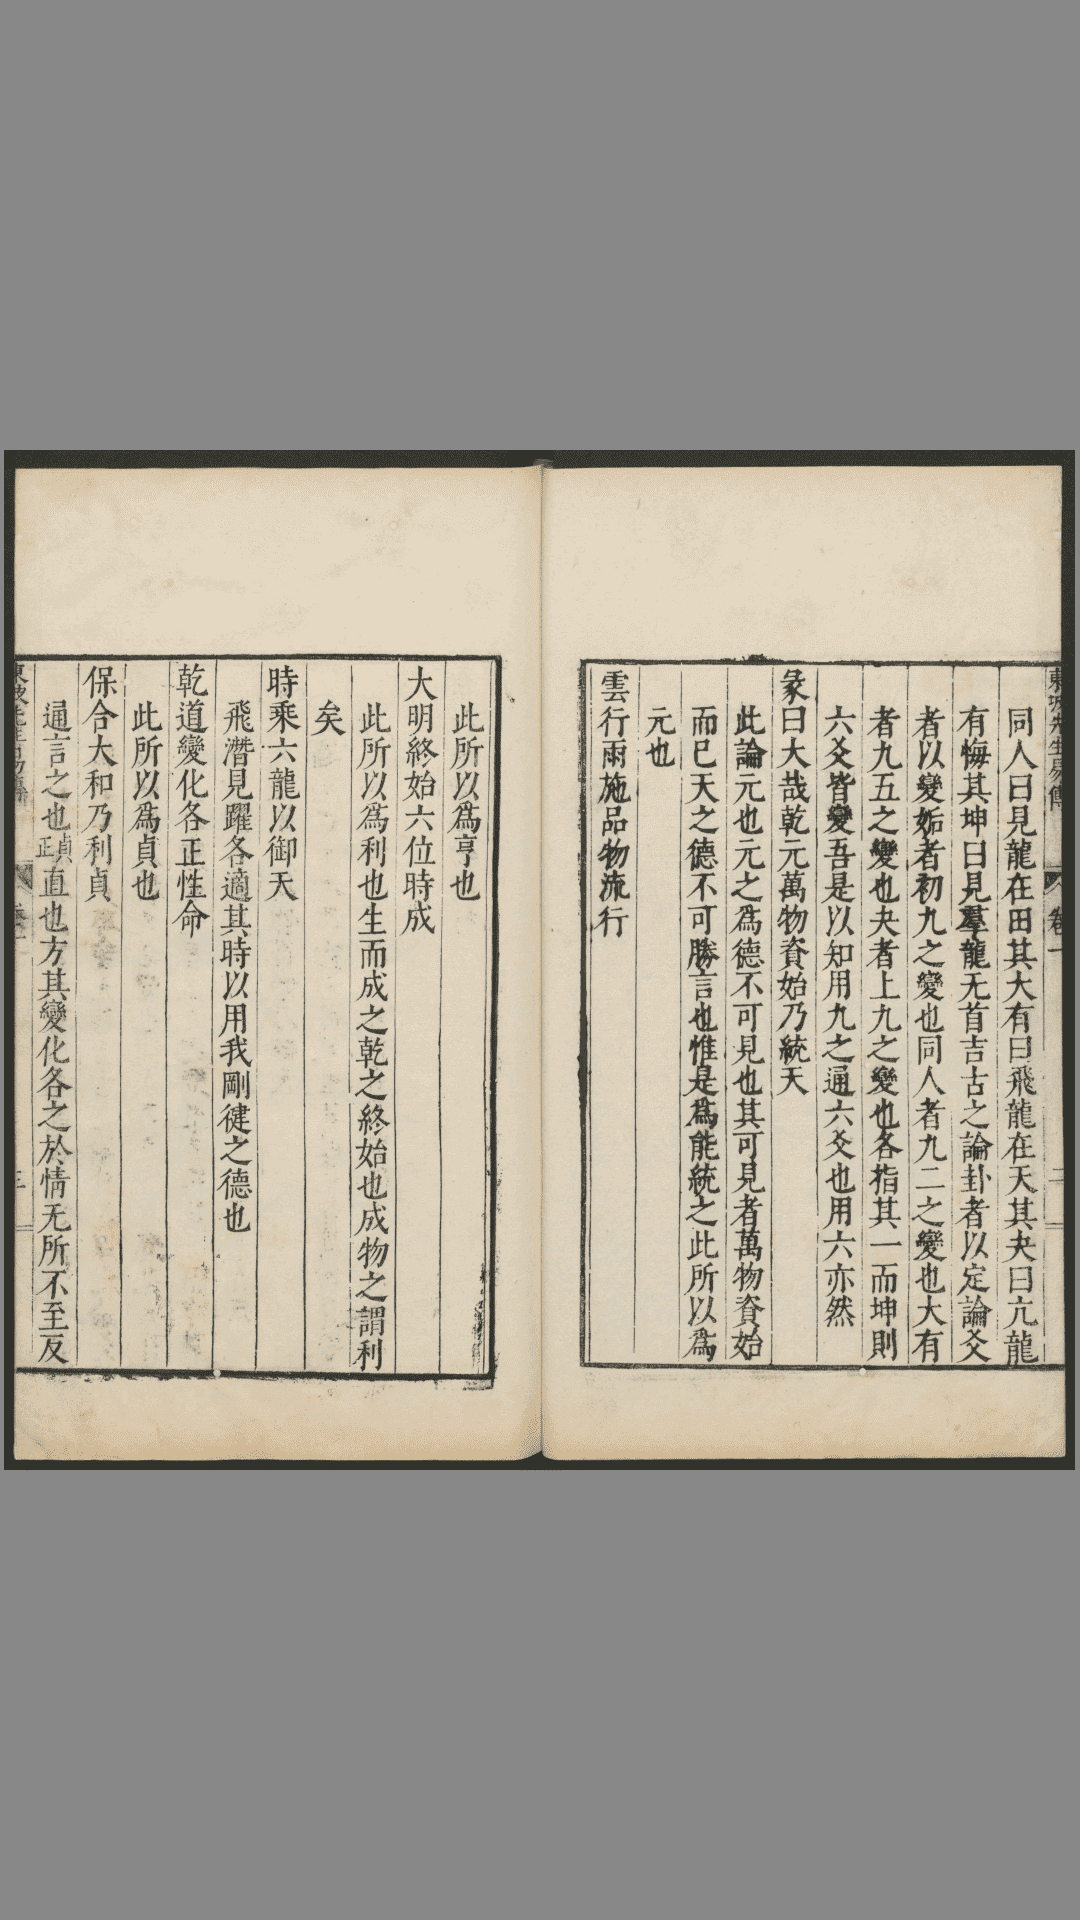 東坡先生易傳 卷一 二
同人曰見龍在田其大有曰飛龍在天其夬曰亢龍
有悔其坤曰見羣龍无首吉古之論卦者以定論爻
者以變姤者初九之變也同人者九二之變也大有
者九五之變也夬者上九之變也各指其一而坤則
六爻皆變吾是以知用九之通六爻也用六亦然
彖曰大哉乾元萬物資始乃統天
此論元也元之爲德不可見也其可見者萬物資始
而已天之德不可勝言也惟是爲能統之此所以爲
元也
雲行雨施品物流行
此所以爲亨也
大明終始六位時成
此所以爲利也生而成之乾之終始也成物之謂利
矣
時乘六龍以御天
飛潛見躍各適其時以用我剛健之德也
乾道變化各正性命
此所以爲貞也
保合大和乃利貞
通言之也貞正直也方其變化各之於情无所不至反